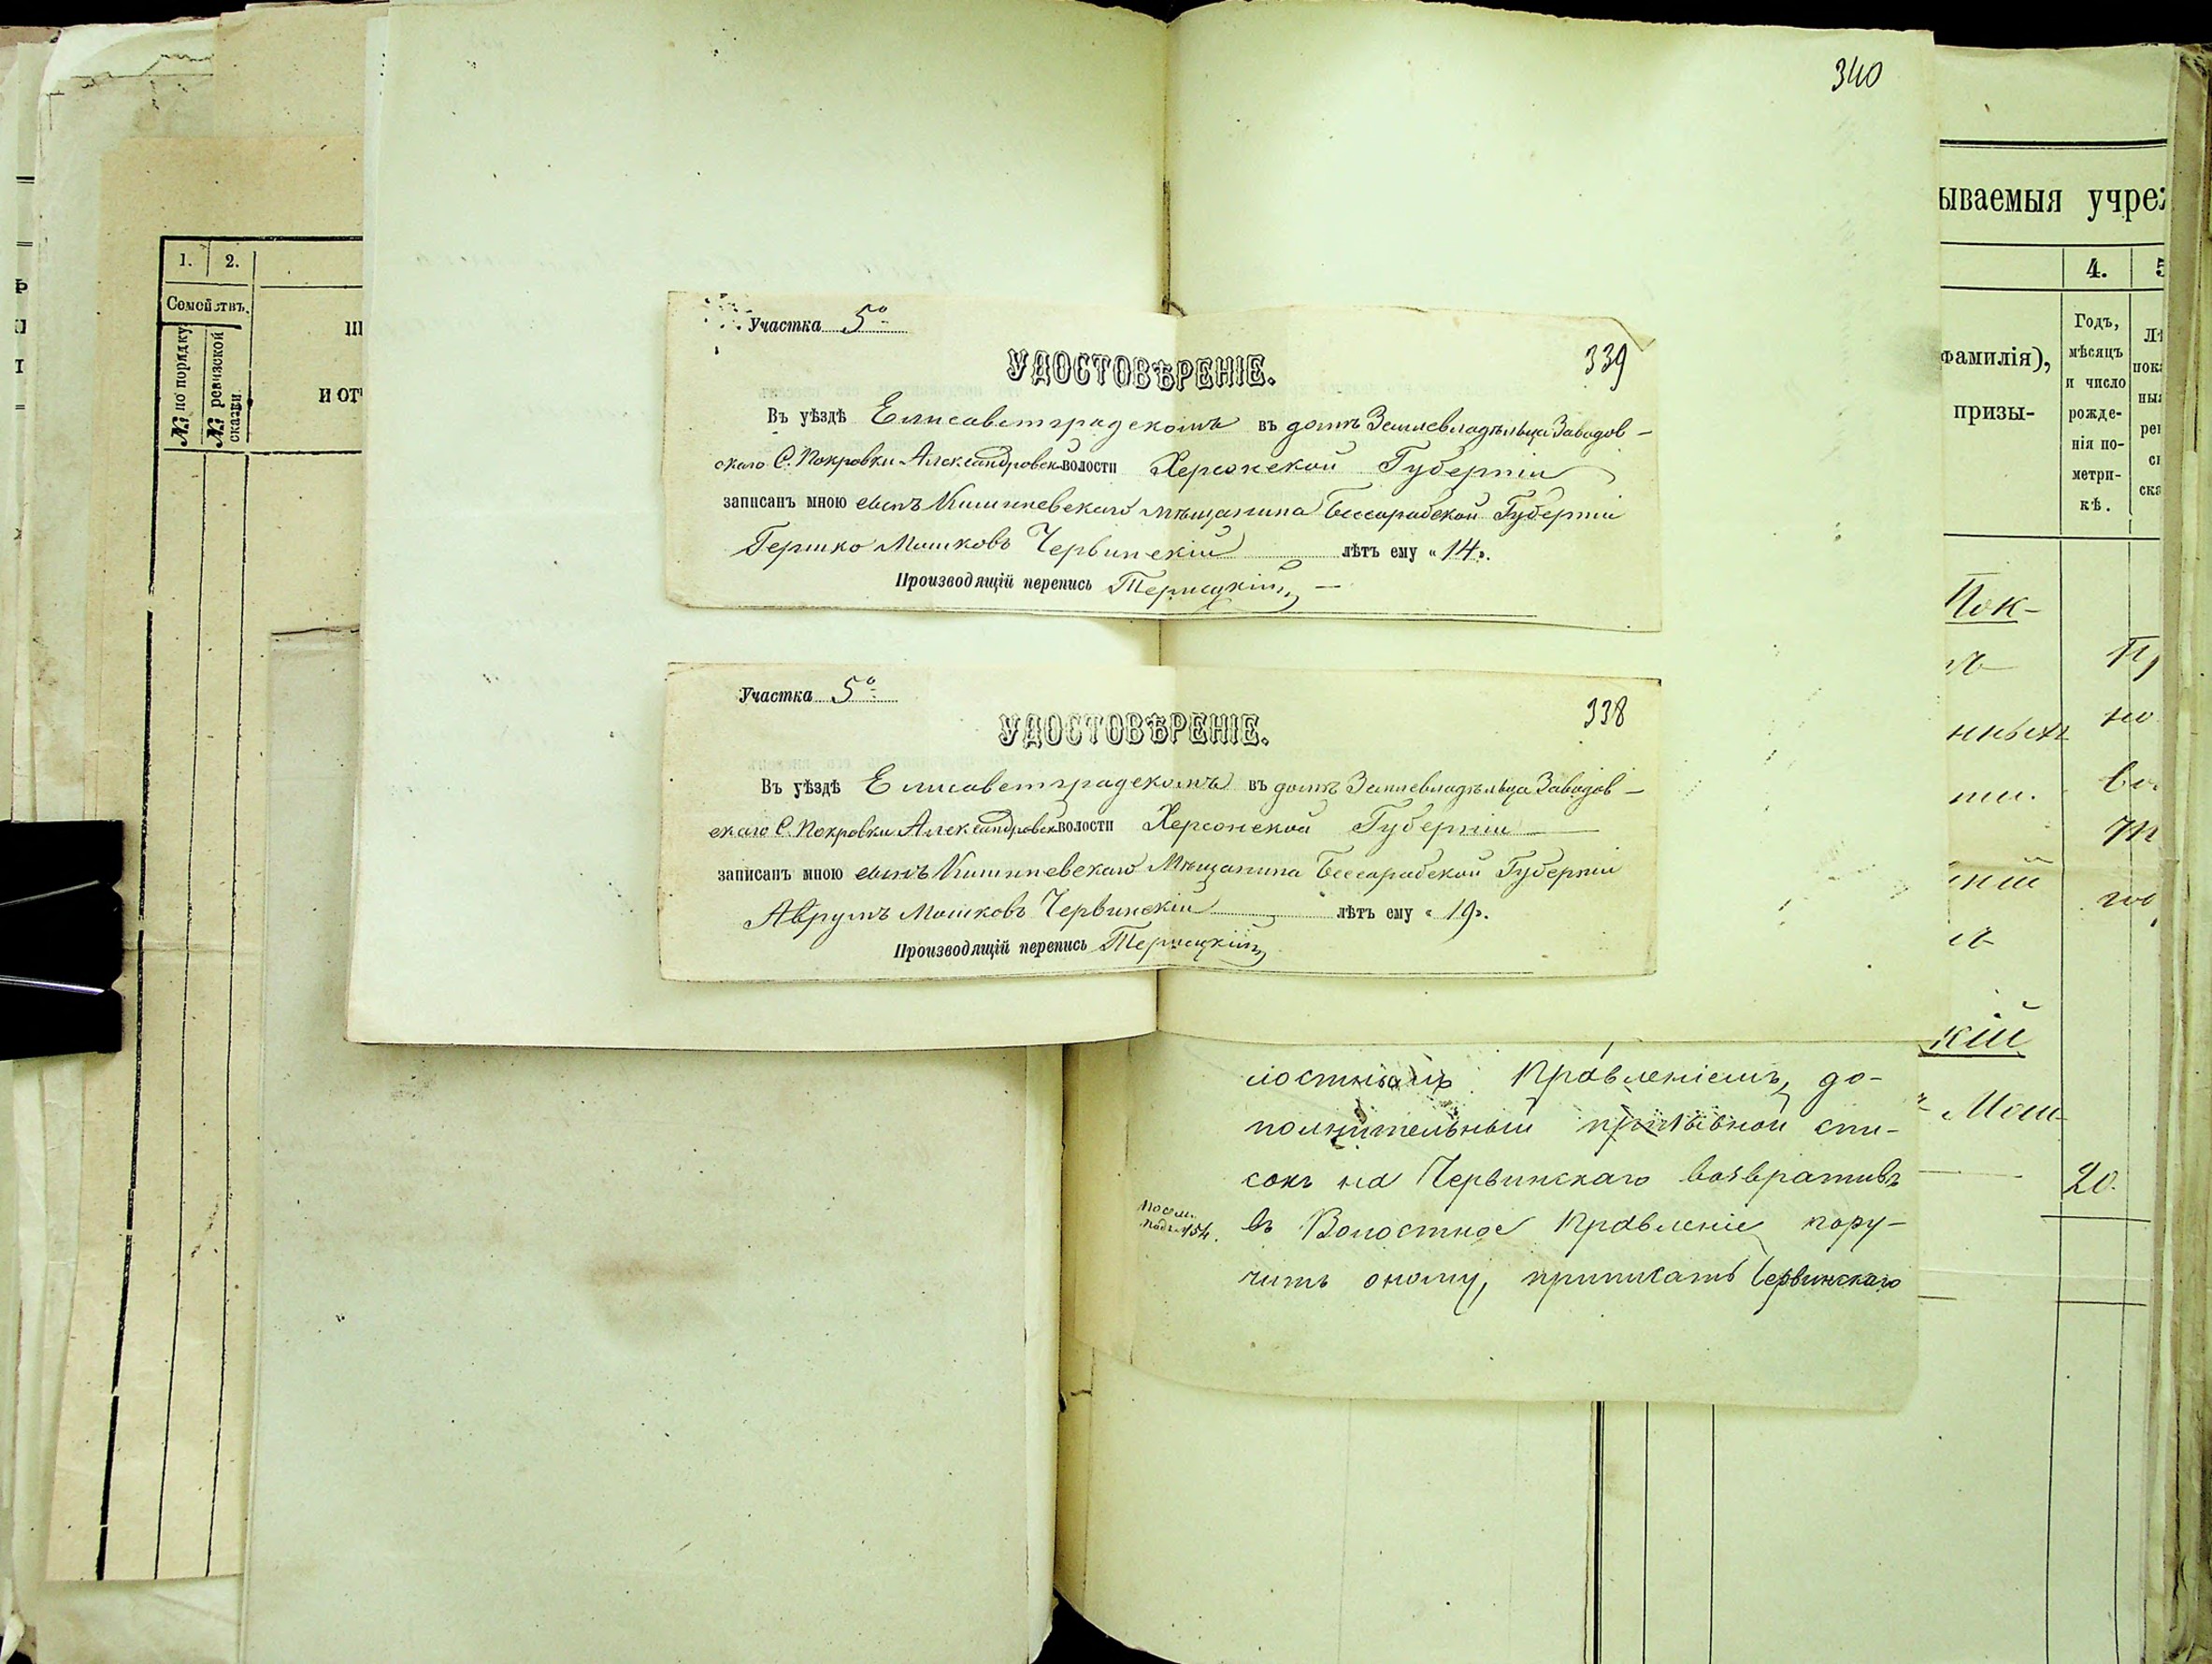 340
Участка 5º
УДОСТОВѢРЕНІЕ.
339
Въ уѣздѣ Елисаветградскомъ въ домѣ Землевладѣльца Завадов-
скаго С. Покровки Александровск. волости Херсонской Губерніи
записанъ мною сынъ Кишиневскаго мѣщанина Бессарабской Губерніи
Гершко Мошковъ Червинскій лѣтъ ему „14".
Производящій перепись
Участка 5º
УДОСТОВѢРЕНІЕ.
338
Въ уѣздѣ Елисаветградскомъ въ домѣ Землевладѣльца Завадов-
скаго С. Покровки Александровск. волости Херсонской Губерніи
записанъ мною сынъ Кишиневскаго Мѣщанина Бессарабской Губерніи
Аврумъ Мошковъ Червинскій лѣтъ ему „19".
Производящій перепись
лостнымъ Правленіемъ, до-
полнительный призывной спи-
сокъ на Червинскаго возвративъ
въ Волостное Правленіе пору-
чить оному, приписать Червинскаго
1. 2.
Семействъ.
№ по порядку
№ ревизской сказки.
И ОТ
ываемыя учре
4. 5
фамилія),
призы-
Годъ,
мѣсяцъ
и число
рожде-
нія по-
метри-
кѣ.
Пок-
нныхъ
кій
Мош-
20.